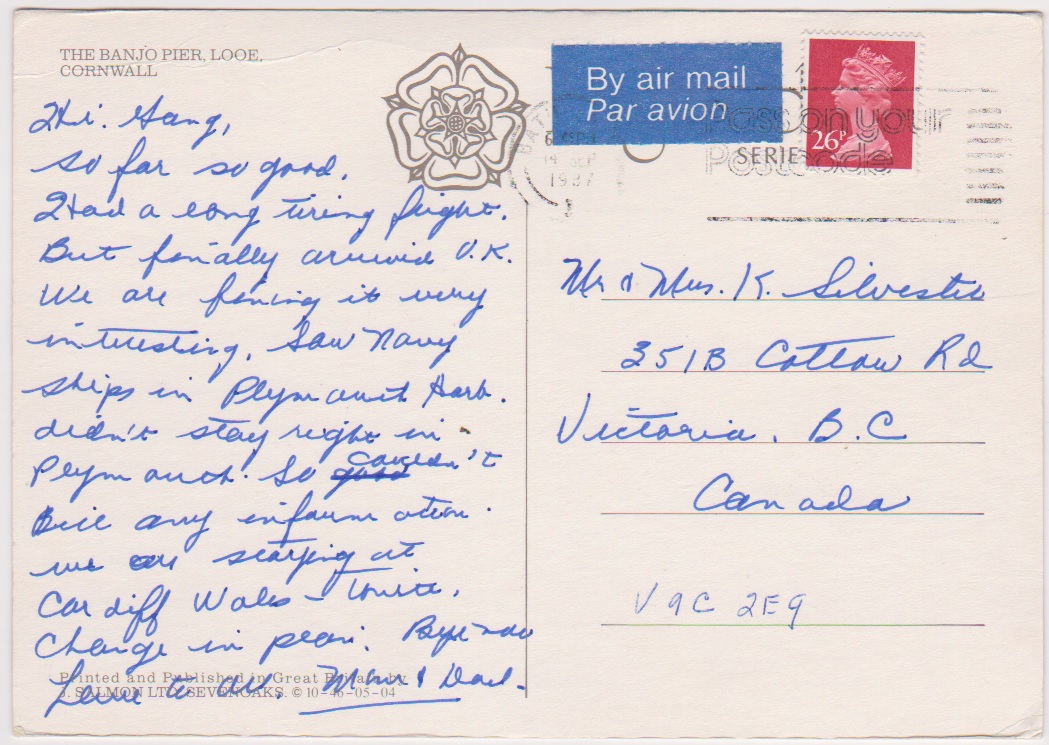 THE BANJO PIER, LOOE,
CORNWALL
Hi. Gang,
so far so good.
Had a long tiring flight.
But finally arrived U.K.
We are fining it very
interesting. Saw Navy
ships in Plymouth Harb.
didn't stay right in
Plymouth. So couldn't
any information.
we are staying at
Cardiff Wales - tonite.
Change in plan. Bye now
Love to all. Mom & Dad.
Printed and Published in Great Britain by
J. SALMON LTD. SEVENOAKS. © 10-46-05-04
By air mail
Par avion
26P
BATH
14 SEP
1987
Pass on your
Postcode
SERIE
Mr & Mrs. K. Silvester
351B Cotlow Rd
Victoria. B.C
Canada
V9C 2E9